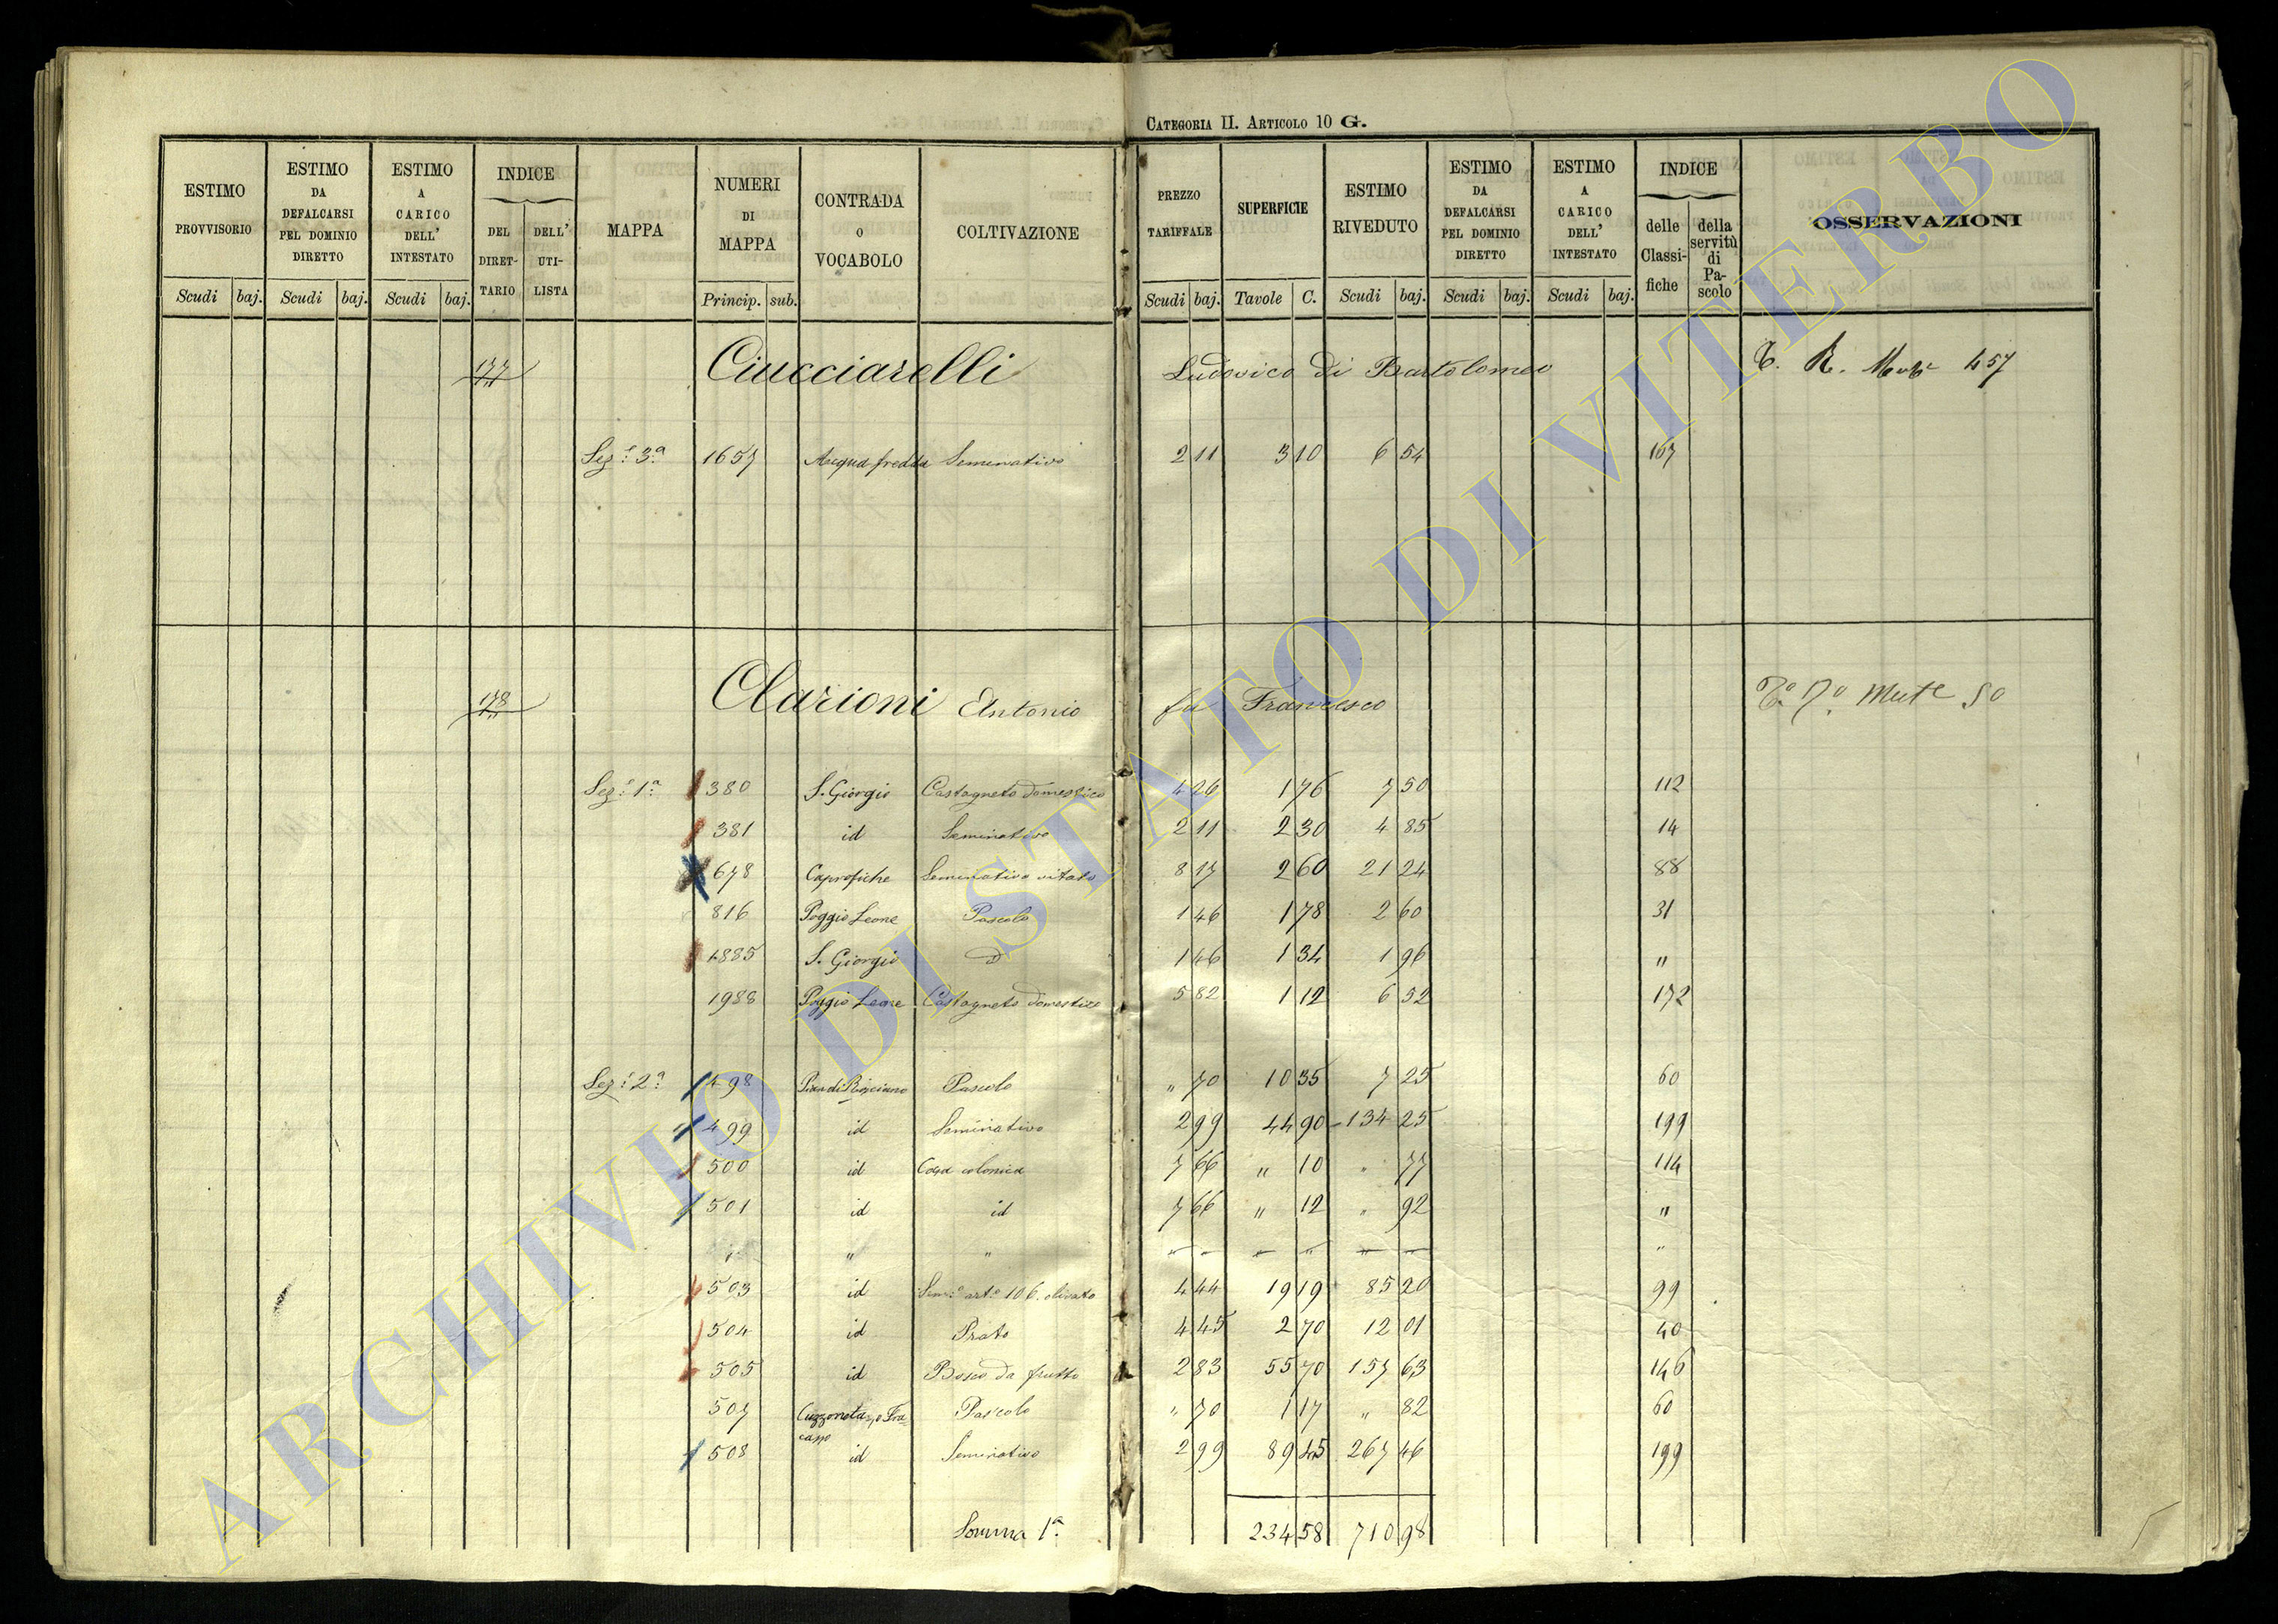 CATEGORIA II. ARTICOLO 10 G.
ESTIMO PROVVISORIO Scudi baj.
ESTIMO DA DEFALCARSI PEL DOMINIO DIRETTO Scudi baj.
ESTIMO A CARICO DELL' INTESTATO Scudi baj.
INDICE DEL DIRETTARIO DELL' UTILISTA
MAPPA
NUMERI DI MAPPA Princip. sub.
CONTRADA O VOCABOLO
COLTIVAZIONE
PREZZO TARIFFALE Scudi baj.
SUPERFICIE Tavole C.
ESTIMO RIVEDUTO Scudi baj.
ESTIMO DA DEFALCARSI PEL DOMINIO DIRETTO Scudi baj.
ESTIMO A CARICO DELL' INTESTATO Scudi baj.
INDICE delle Classifiche della servitù di Pascolo
OSSERVAZIONI
177 Ciucciarelli Ludovico di Bartolomeo 457
Sez.e 3.a 1657 Acqua fredda Seminativo 2 11 3 10 6 54 167
178 Clarioni Antonio fu Francesco Mut.e 50
Sez.e 1.a 380 S. Giorgio Castagneto domestico 4 26 1 76 7 50 112
381 id Seminativo 2 11 2 30 4 85 14
678 Caprofiche Seminativo vitato 8 17 2 60 21 24 88
816 Poggio Leone Pascolo 1 46 1 78 2 60 31
1885 S. Giorgio d 1 46 1 34 1 96 "
1988 Poggio Leone Castagneto domestico 5 82 1 12 6 52 172
Sez.e 2.a 498 Pascolo " 70 10 35 7 25 60
499 id Seminativo 2 99 44 90 134 25 199
500 id Casa colonica 7 66 " 10 " 77 114
501 id id 7 66 " 12 " 92 "
" " " "
503 id Sem.o art.o 106. olivato 4 44 19 19 85 20 99
504 id Prato 4 45 2 70 12 01 40
505 id Bosco da frutto 2 83 55 70 157 63 146
507 Pascolo " 70 1 17 " 82 60
508 id Seminativo 2 99 89 45 267 46 199
Somma 1.a 234 58 710 98
ARCHIVIO DI STATO DI VITERBO